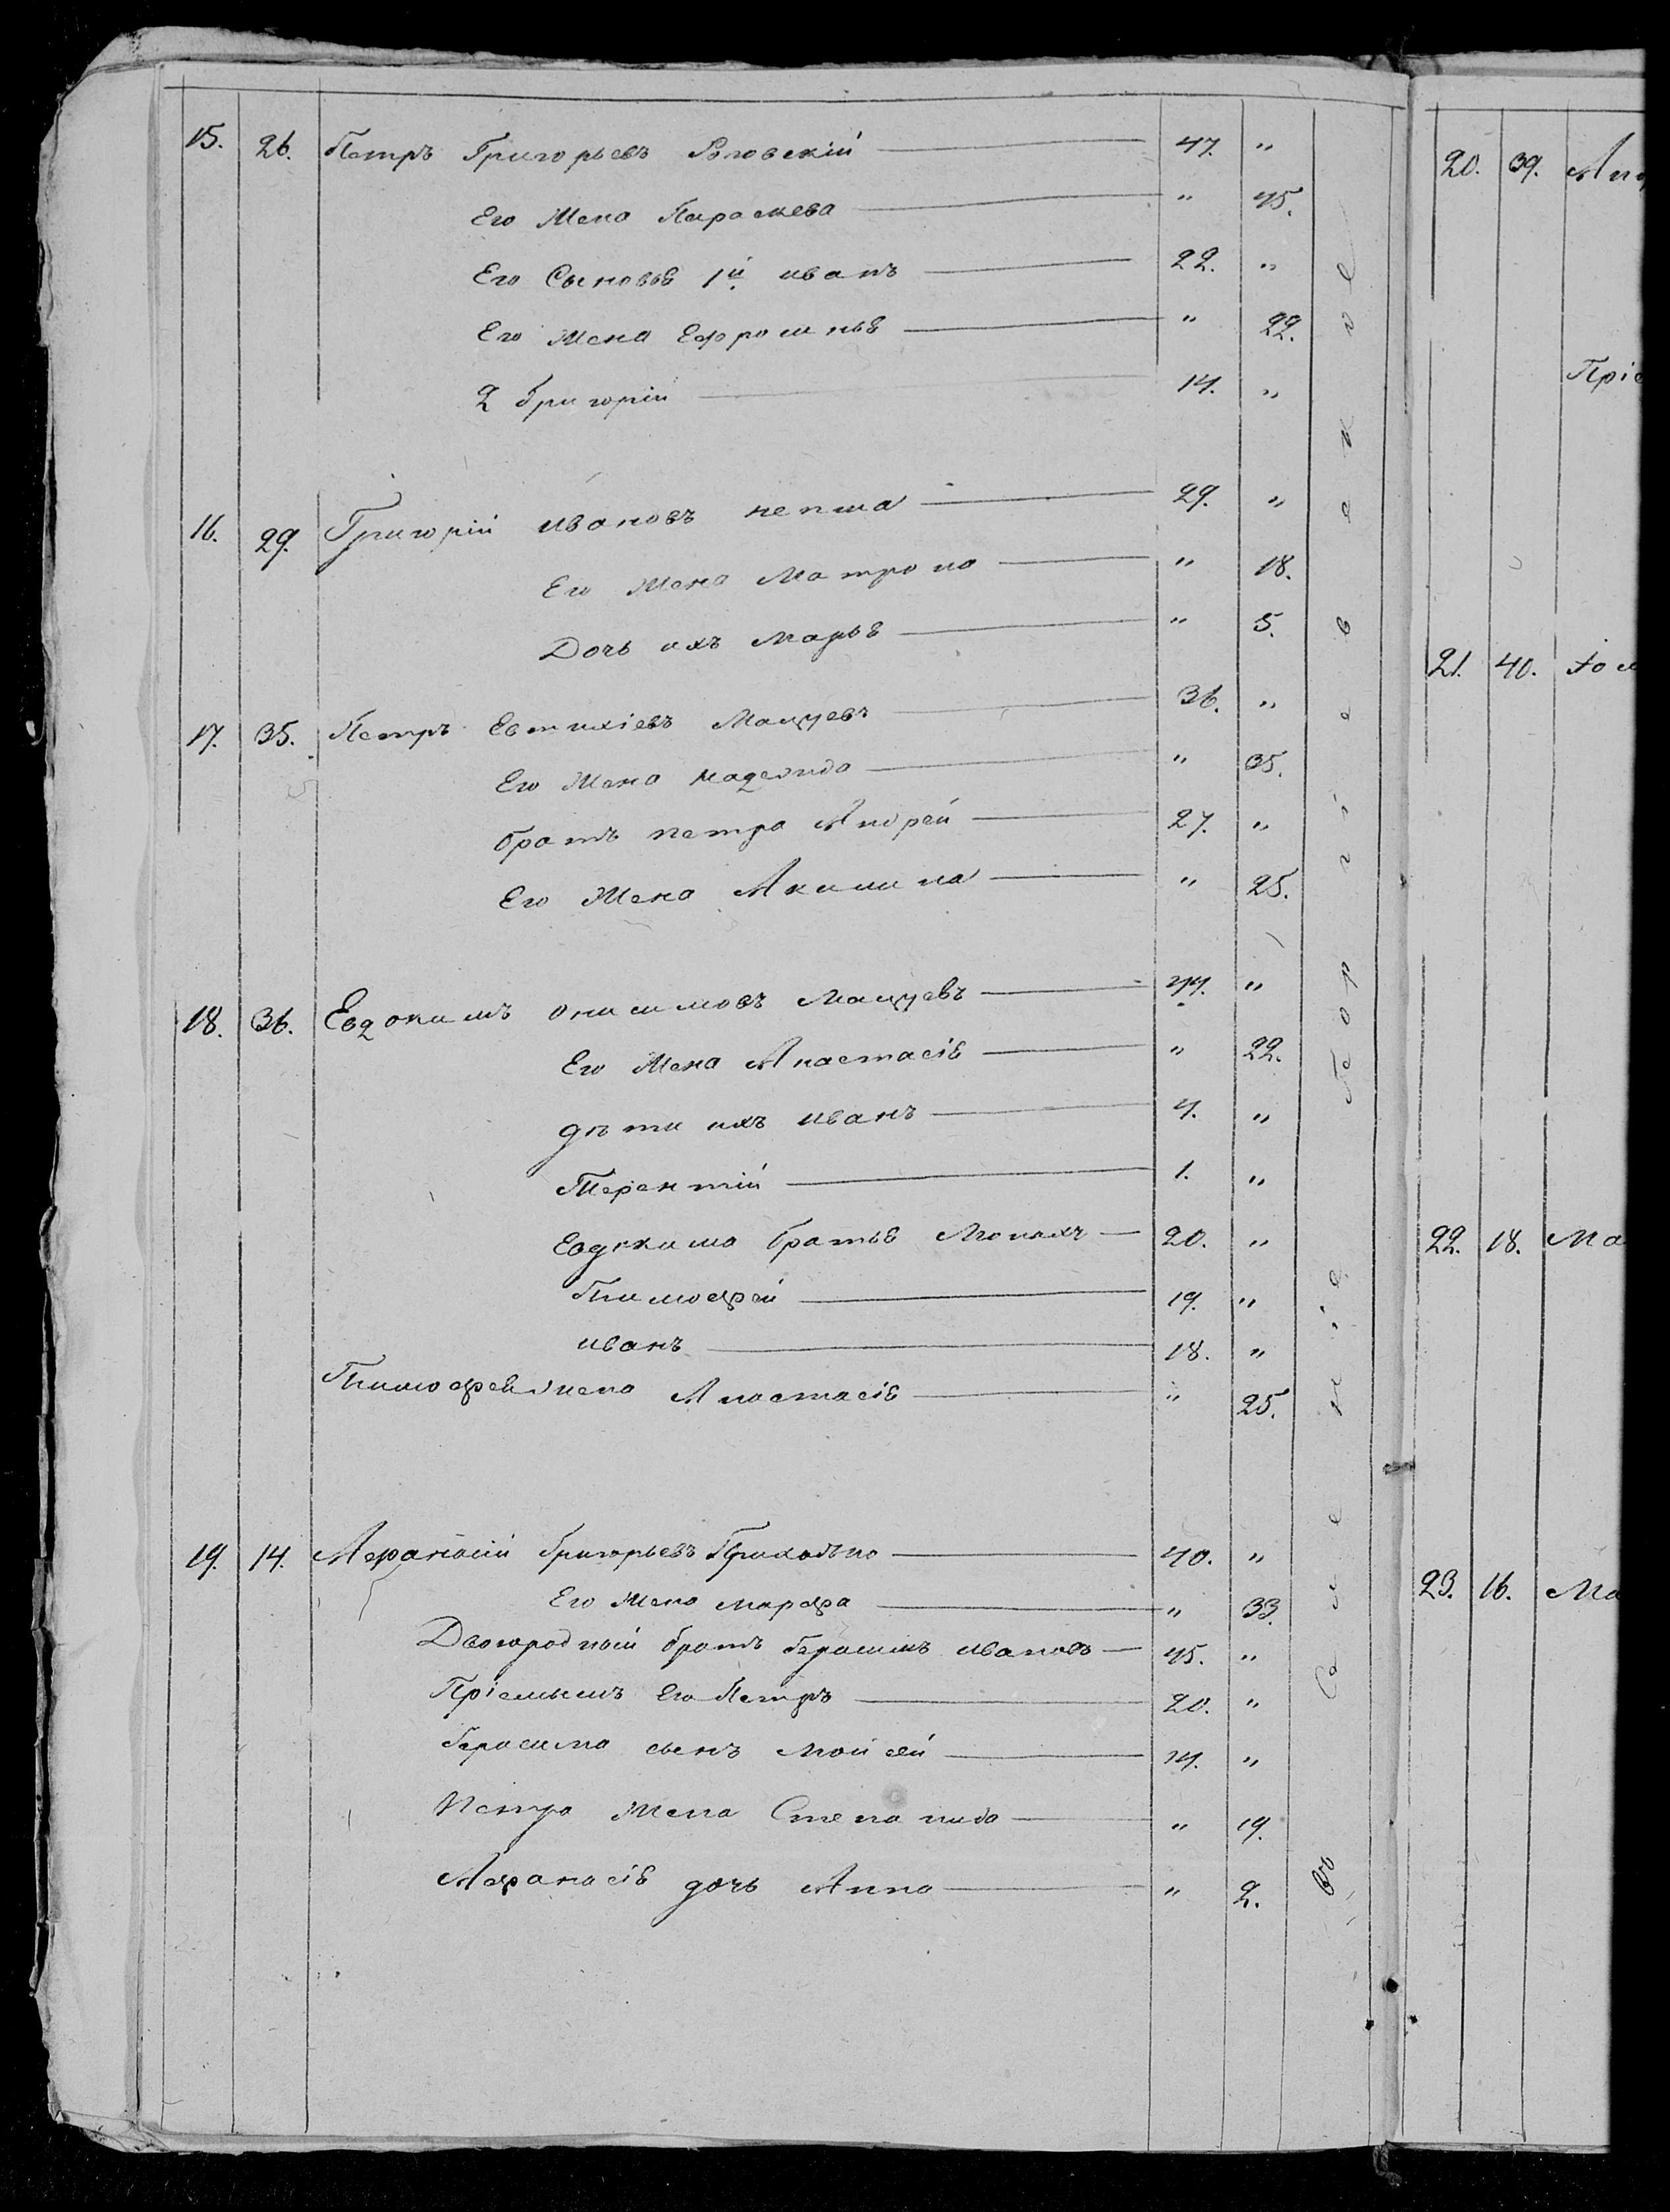 15. 26. Петръ Григорьевъ Роговскій 47. "
Его Жена Параскева " 45.
Его Сыновья 1й Иванъ 22. "
Его Жена Ефросинья " 22.
2 Григорій 14. "
16. 29. Григорій Ивановъ Непша 29. "
Его Жена Матрона " 18.
Дочь ихъ Марья " 5.
17. 35. Петръ Евтихіевъ Мацуевъ 36. "
Его Жена Надежда " 35.
братъ Петра Андрей 27. "
Его Жена Акилина " 25.
18. 36. Евдокимъ Онисимовъ Мацуевъ "
Его Жена Анастасія " 22.
дѣти ихъ Иванъ 4. "
Терентій 1. "
Евдокима братья 20. "
Тимофей 19. "
Иванъ 18. "
Тимофея жена Анастасія " 25.
19. 14. Афанасій Григорьевъ Приходько 40. "
Его Жена Марфа " 33.
Двоюродный братъ Герасимъ Ивановъ 45. "
Пріемышъ Его Петръ 20. "
Герасима сынъ Мойсей "
Петра Жена Степанида " 19.
Афанасія дочь Анна " 2.
Въ Селеніе Георгіевское
20. 39.
21. 40.
22. 18. Ма
23. 16. Ма